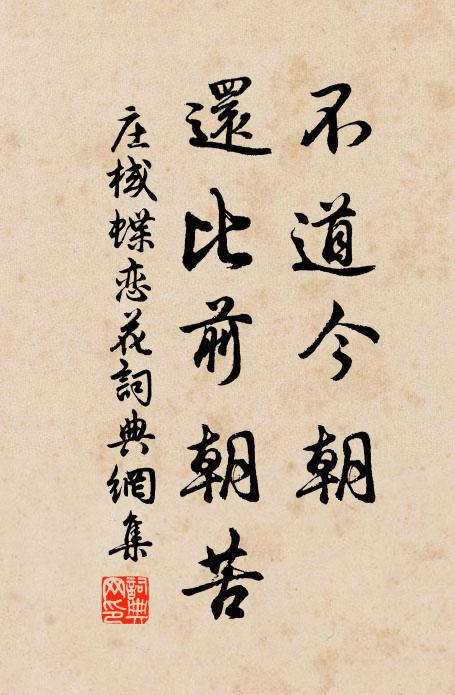 不道今朝
還比前朝苦
庄棫蝶恋花詞典網集
詞典网印